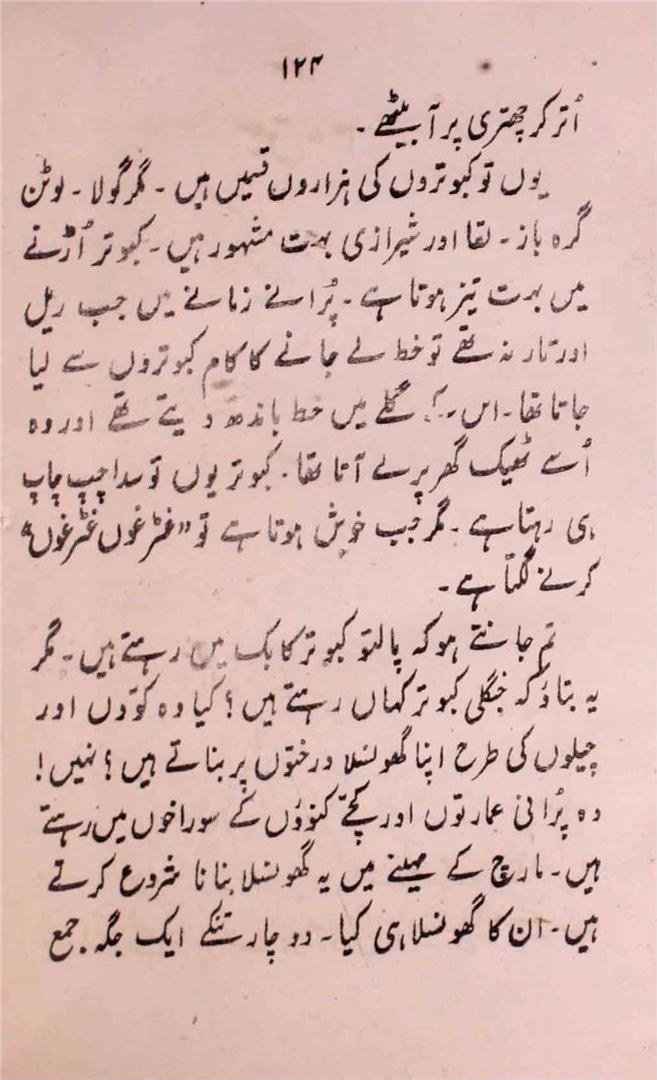 ۱۲۴
اُتر کر چھتری پر آ بیٹھے۔
یوں تو کبوتروں کی ہزاروں قسمیں ہیں۔ مگر گولا۔ لوٹن
گرہ باز۔ لقا اور شیرازی بہت مشہور ہیں۔ کبوتر اُڑنے
میں بہت تیز ہوتا ہے۔ پُرانے زمانے میں جب ریل
اور تار نہ تھے تو خط لے جانے کا کام کبوتروں سے لیا
جاتا تھا۔ اس کے گلے میں خط باندھ دیتے تھے اور وہ
اُسے ٹھیک گھر پر لے آتا تھا۔ کبوتر یوں تو سدا چپ چاپ
ہی رہتا ہے۔ مگر جب خوش ہوتا ہے تو "غٹرغوں غٹرغوں"
کرنے لگتا ہے۔
تم جانتے ہو کہ پالتو کبوتر کابک میں رہتے ہیں۔ مگر
یہ بتاؤ کہ جنگلی کبوتر کہاں رہتے ہیں؟ کیا وہ کوّوں اور
چیلوں کی طرح اپنا گھونسلا درختوں پر بناتے ہیں؟ نہیں!
وہ پُرانی عمارتوں اور کچّے کنوؤں کے سوراخوں میں رہتے
ہیں۔ مارچ کے مہینے میں یہ گھونسلا بنانا شروع کرتے
ہیں۔ ان کا گھونسلا ہی کیا۔ دو چار تنکے ایک جگہ جمع